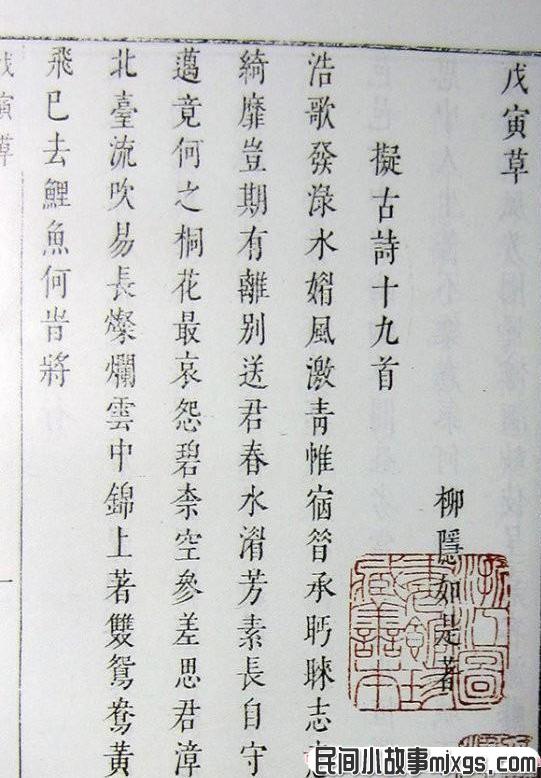 戊寅草
柳隱如是著
擬古詩十九首
浩歌發淥水媚風激青帷宿昔承眄睞志
綺靡豈期有離別送君春水湄芳素長自守
邁竟何之桐花最哀怨碧柰空參差思君漳
北臺流吹易長燦爛雲中錦上著雙鴛鴦黃
飛已去鯉魚何旹將
戊寅草
浙江圖
書館珍
藏善本
民间小故事mixgs.com